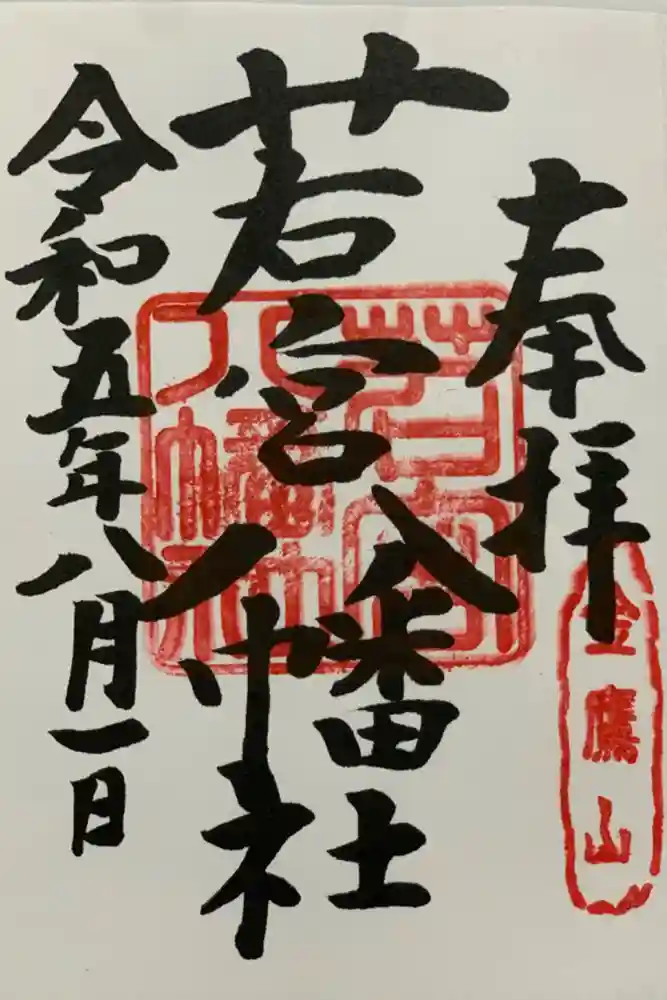 奉拝
金鷹山
若宮八幡社
若宮八幡社
令和五年八月一日